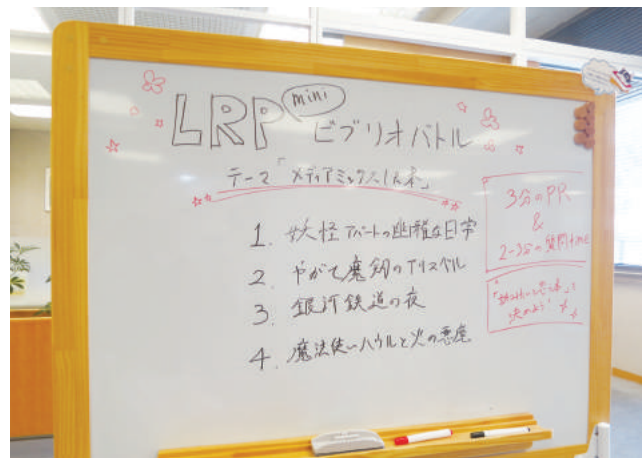 LRP mini ビブリオバトル
テーマ「メディアミックスした本」
1. 妖怪アパートの幽雅な日常
2. やがて魔剱のアリスベル
3. 銀河鉄道の夜
4. 魔法使いハウルと火の悪魔
3分のPR
&
2~3分の質問time
「読みたいと思う本」を
決めよう